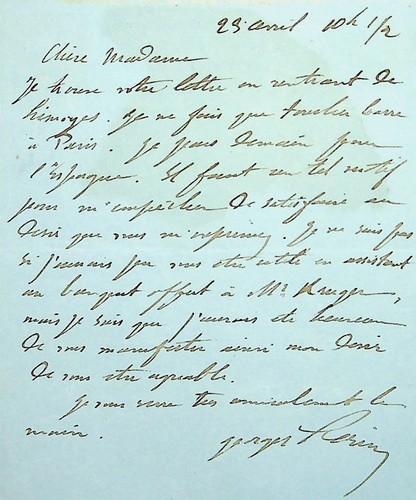 23 avril 10h 1/2
Chère Madame
Je trouve votre lettre en rentrant de
Limoges. Je ne fais que toucher barre
à Paris. Je pars demain pour
l'Espagne. Il faut un tel motif
pour m'empêcher de satisfaire au
désir que vous m'exprimez. Je ne sais pas
si j'aurais pu vous être utile en assistant
au banquet offert à Mr Kruger,
mais je sais que j'aurais été heureux
de vous manifester ainsi mon désir
de vous être agréable.
Je vous serre très amicalement la
main.
Georges Périn